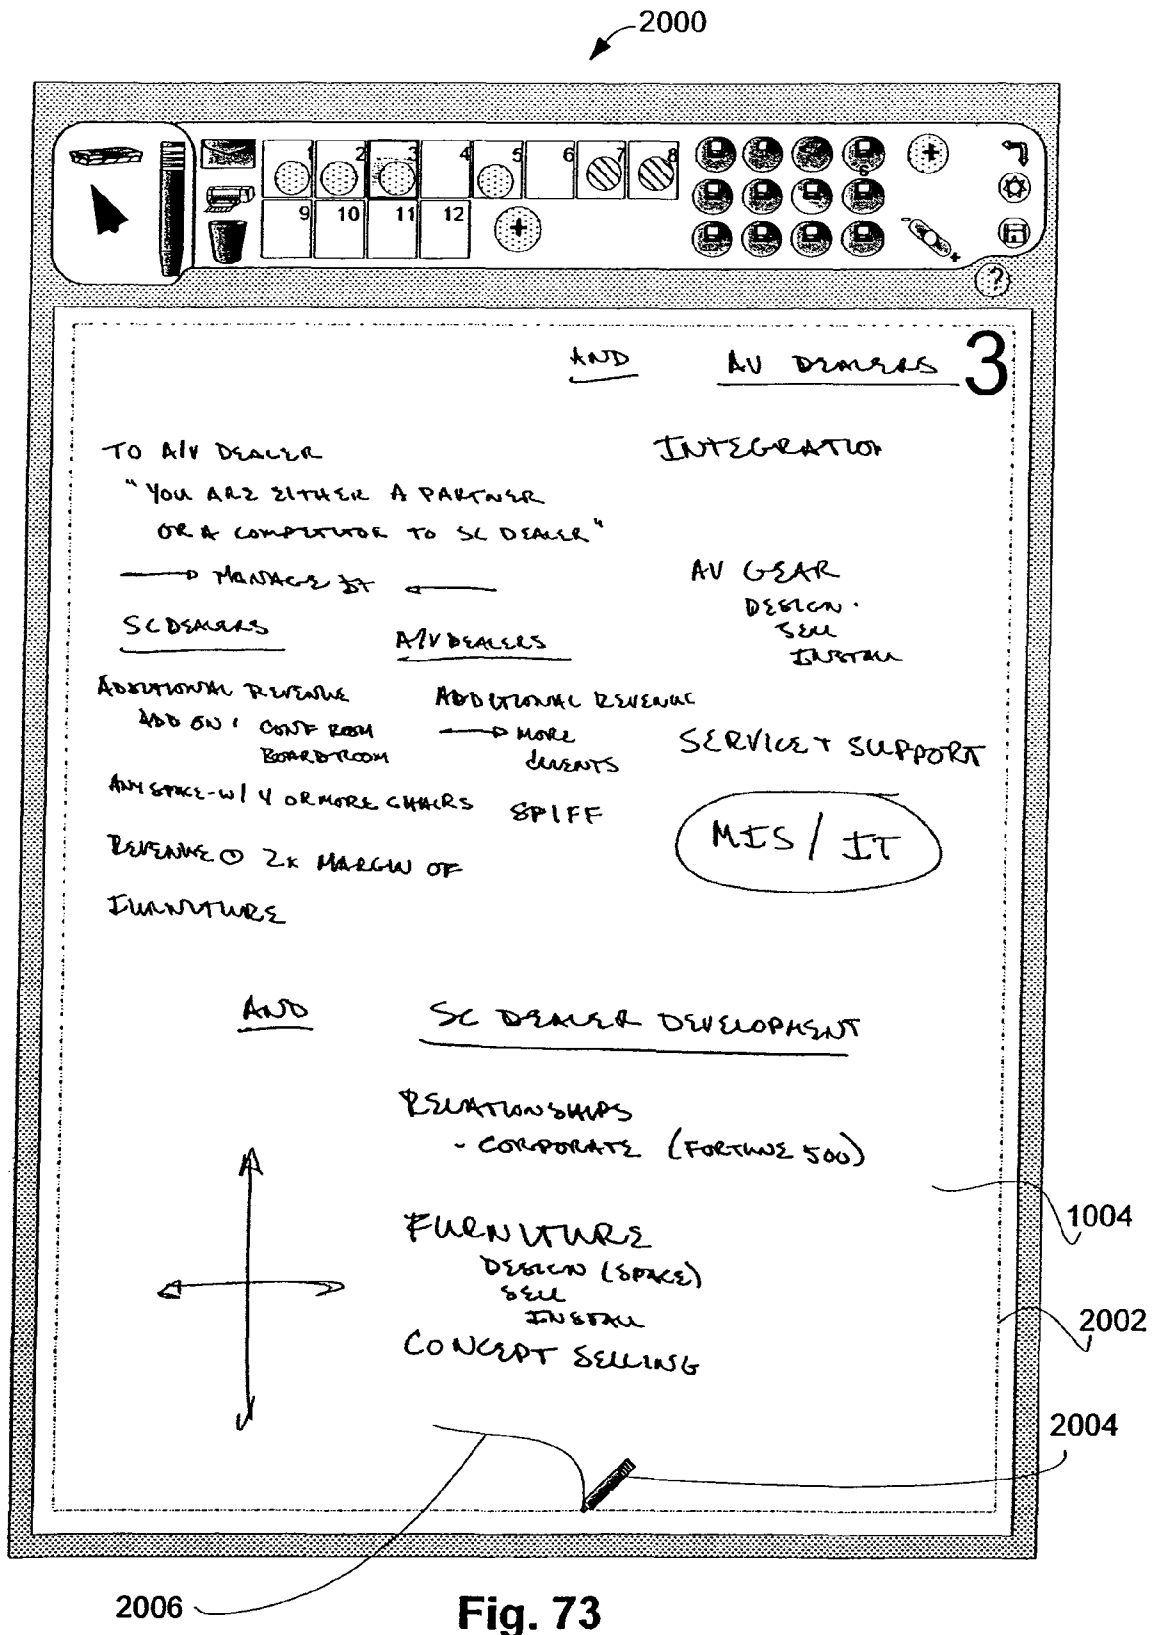 2000
1 2 3 4 5 6 7 8
9 10 11 12
?
3
AND AV DEALERS
TO A/V DEALER
"YOU ARE EITHER A PARTNER
OR A COMPETITOR TO SC DEALER"
MANAGE IT
SC DEALERS
A/V DEALERS
ADDITIONAL REVENUE
ADD ON: CONF ROOM
BOARDROOM
ANY SPACE-W/ 4 OR MORE CHAIRS
REVENUE @ 2X MARGIN OF
FURNITURE
ADDITIONAL REVENUE
MORE
CLIENTS
SPIFF
INTEGRATION
AV GEAR
DESIGN
SELL
INSTALL
SERVICE + SUPPORT
MIS / IT
AND
SC DEALER DEVELOPMENT
RELATIONSHIPS
- CORPORATE (FORTUNE 500)
FURNITURE
DESIGN (SPACE)
SELL
INSTALL
CONCEPT SELLING
1004
2002
2004
2006
Fig. 73